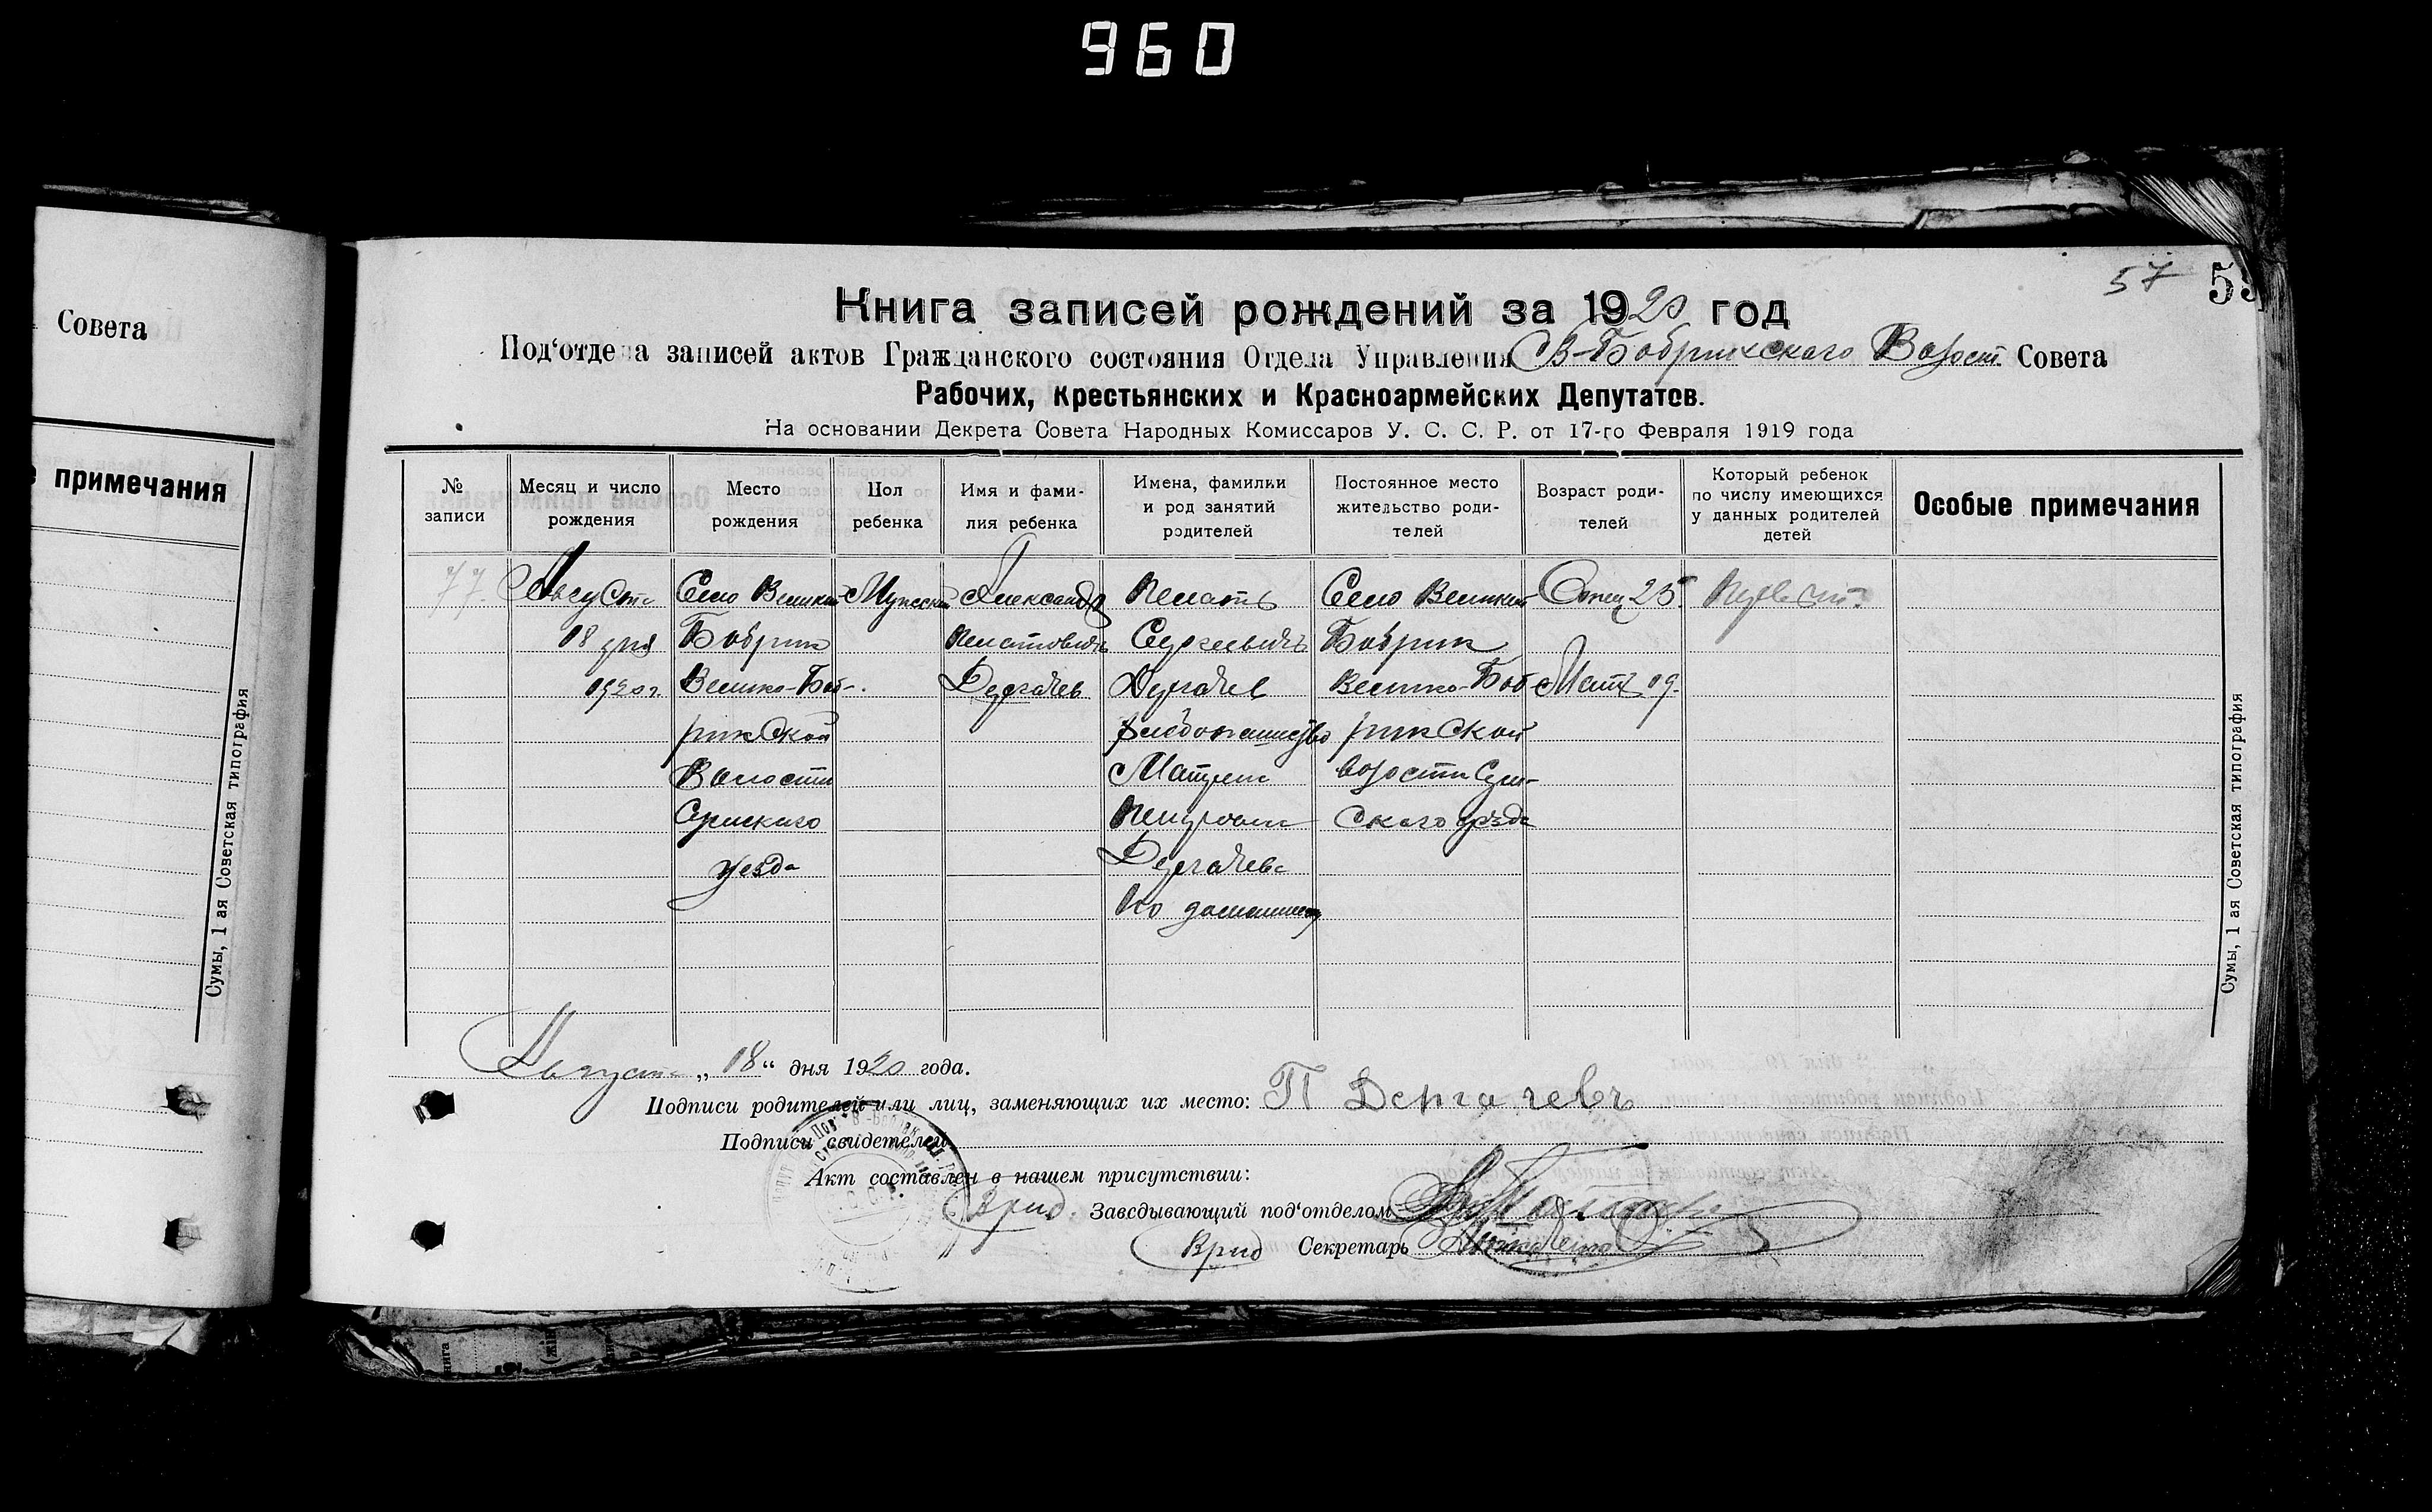 960
Совета
е примечания
Сумы, 1 ая Советская типография
57
Книга записей рождений за 1920 год
Под'отдела записей актов Гражданского состояния Отдела Управления В-Бобрикского Волост. Совета
Рабочих, Крестьянских и Красноармейских Депутатов.
На основании Декрета Совета Народных Комиссаров У. С. С. Р. от 17-го Февраля 1919 года
№ записи
Месяц и число рождения
Место рождения
Пол ребенка
Имя и фами-
лия ребенка
Имена, фамилии
и род занятий
родителей
Постоянное место
жительство роди-
телей
Возраст роди-
телей
Который ребенок
по числу имеющихся
у данных родителей
детей
Особые примечания
77.
Августа
18 дня
1920 г.
Село Великий
Бобрик
Велико-Боб-
рикской
Волости
Сумского
уезда
Мужской
Александр
Игнатович
Дергачев
Сергеевичъ
Дергачев
хлебопашество
Матрена
Петровна
Дергачева
по домашнему
Село Великий
Бобрик
Велико-Боб
рикской
волости Сум-
ского уезда
Отец 25.
Мать 19.
Первый.
Сумы, 1 ая Советская типография
Августа „18“ дня 1920 года.
Подписи родителей или лиц, заменяющих их место: П Дергачевъ
Подписи свидетелей
Акт составлен в нашем присутствии:
Врид. Заведывающий под'отделом
Врид Секретарь